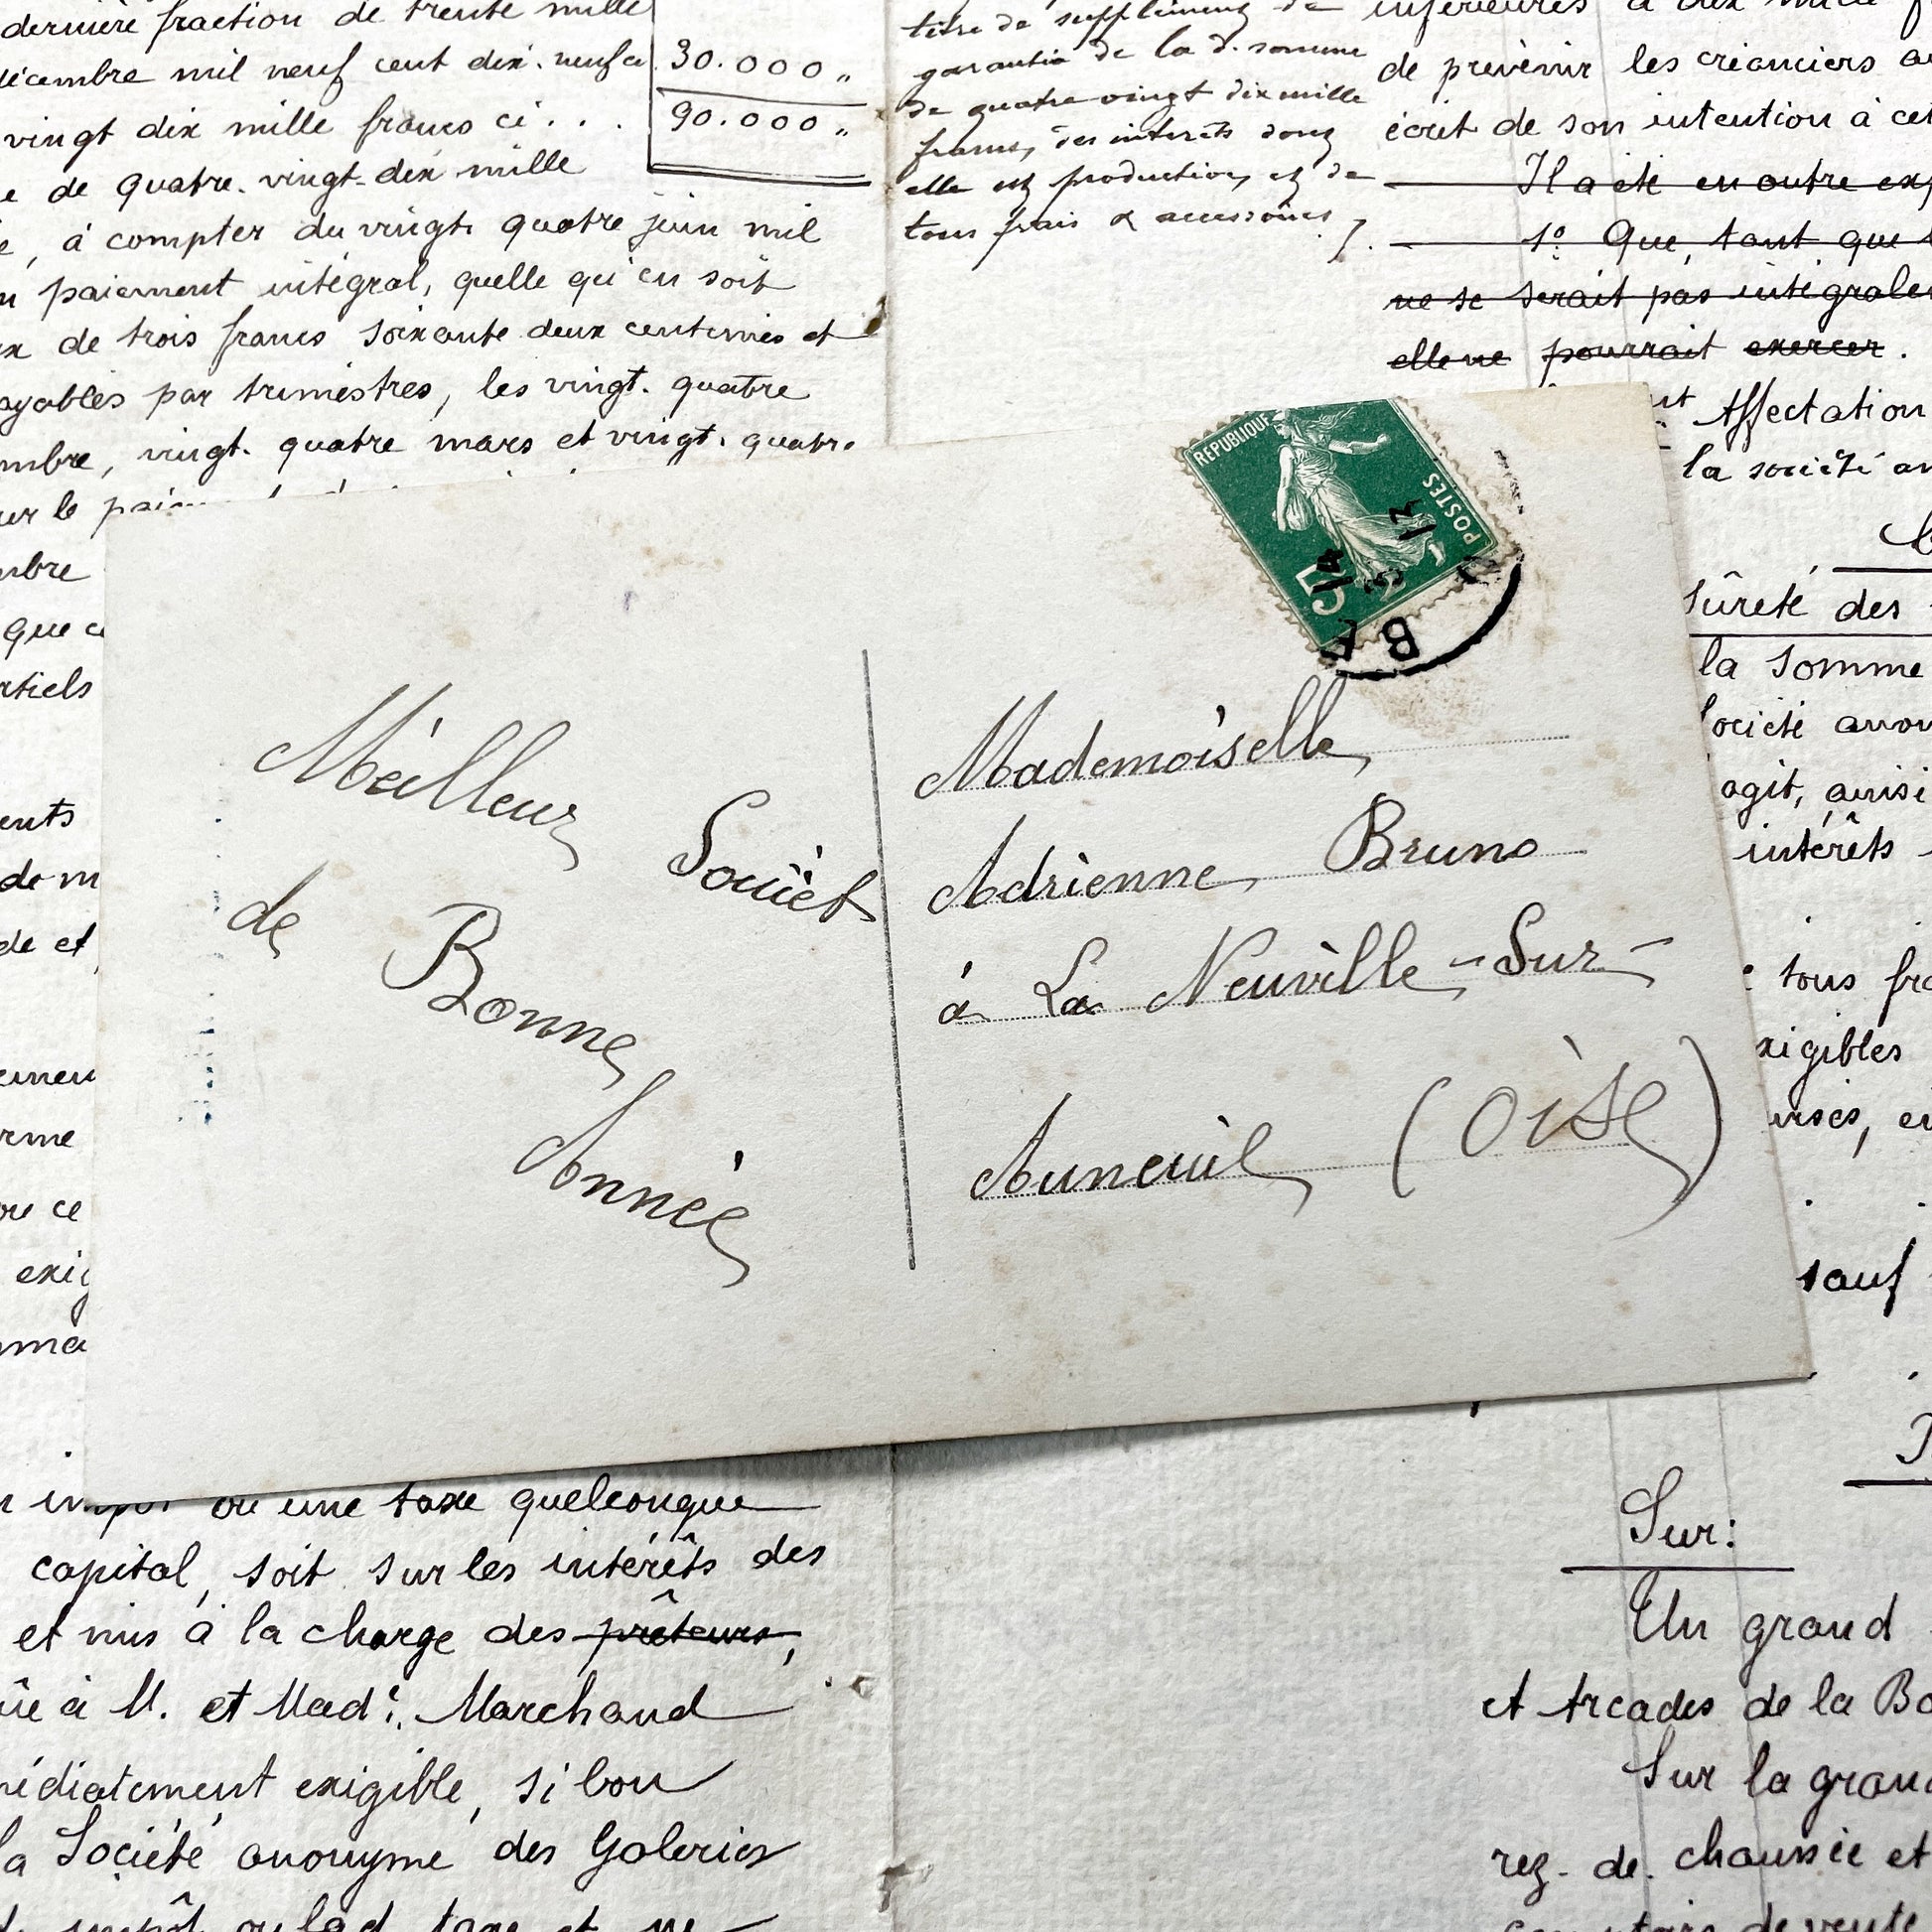 dernière fraction de trente mille
décembre mil neuf cent dix-neuf ci
30.000 "
vingt dix mille francs ci . . .
90.000 "
e de quatre-vingt-dix mille
, à compter du vingt-quatre juin mil
paiement intégral, quelle qu'en soit
x de trois francs soixante deux centimes et
ayables par trimestres, les vingt-quatre
mbre, vingt-quatre mars et vingt-quatre
ur le
mbre
que c
rtiels
ents
de m
de et
rme
ce
exig
titre de supplément de
garantie de la d. somme
de quatre-vingt dix mille
francs, des intérêts dont
elle est production, et de
tous frais & accessoires /.
inférieures à dix mille f
de prévenir les créanciers a
écrit de son intention à cet
Il a été en outre exp
1º Que, tant que
ne se serait pas intégrale
elle ne pourrait exercer.
Affectation
la société an
sûreté des
la somme
société anon
agit, ainsi
intérêts
tous fra
xigibles
urses, en
sauf
REPUBLIQUE
POSTES
5 C
14
13
B
Meilleur Souïet
de Bonne
Année
Mademoiselle
Adrienne Bruno
à La Neuville-Sur-
Auneuil (Oise)
ou une taxe quelconque
capital, soit sur les intérêts des
et mis à la charge des prêteurs,
à M. et Made. Marchand
médiatement exigible, si bon
la Société anonyme des Galeries
impôt ou lad. taxe et ne
Sur:
Un grand
et Arcades de la Bo
Sur la grand
rez-de-chaussée et
comptoirs de vente